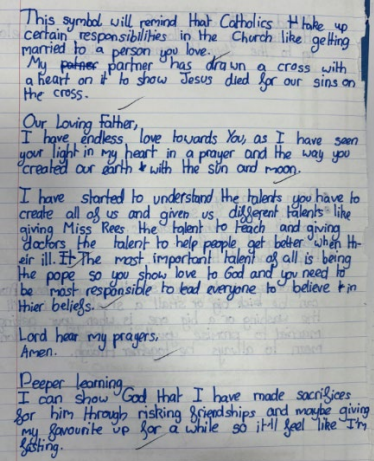 This symbol will remind that Catholics take up
certain responsibilities in the Church like getting
married to a person you love.
My partner has drawn a cross with
a heart on it to show Jesus died for our sins on
the cross.
Our Loving Father,
I have endless love towards You, as I have seen
your light in my heart in a prayer and the way you
created our earth with the sun and moon.
I have started to understand the talents you have to
create all of us and given us different talents like
giving Miss Rees the talent to teach and giving
doctors the talent to help people get better when th-
eir ill. The most important talent of all is being
the pope so you show love to God and you need to
be most responsible to lead everyone to believe in
thier beliefs.
Lord hear my prayers,
Amen.
Deeper learning
I can show God that I have made sacrifices
for him through risking friendships and maybe giving
my favourite up for a while so it'll feel like I'm
fasting.